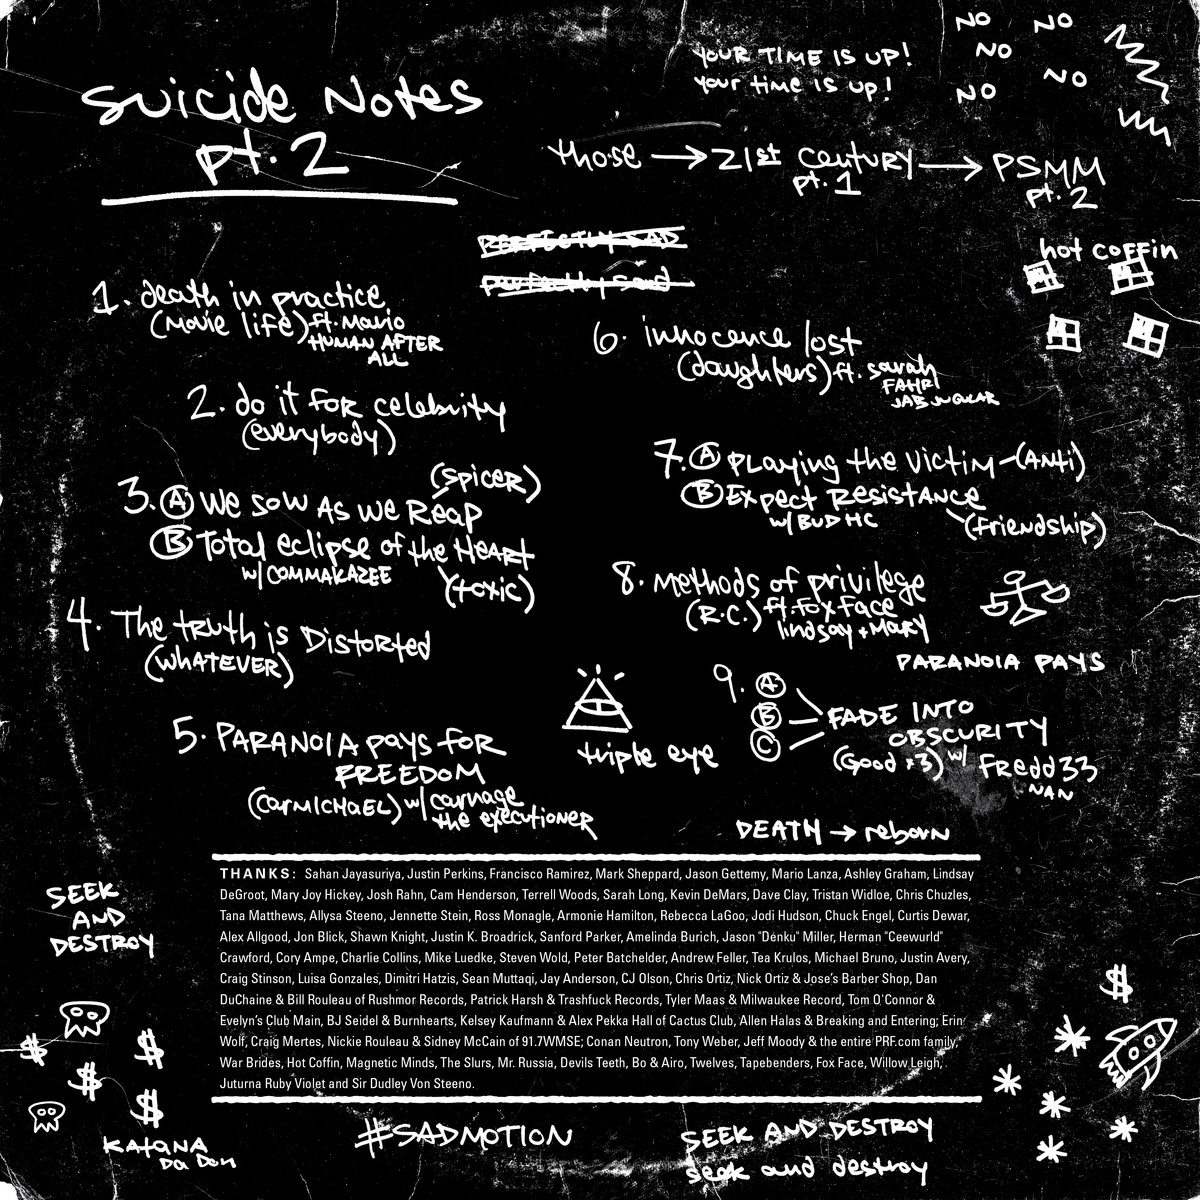 Suicide Notes
pt. 2
YOUR TIME IS UP!
your time is up!
NO NO
NO
NO NO
those → 21st century → PSMM
pt. 1 pt. 2
PERFECTLY SAD
perfectly sad
hot coffin
1. death in practice
(movie life) ft. Mario
HUMAN AFTER
ALL
2. do it for celebrity
(everybody)
3. A We sow As we Reap
(spicer)
B Total eclipse of the Heart
w/ COMMAKAZEE
(toxic)
4. The truth is Distorted
(WHATEVER)
5. PARANOIA pays for
FREEDOM
(CARMICHAEL) w/ carnage
the executioner
6. innocence lost
(daughters) ft. sarah
FAHRI
JAB JUGULAR
7. A playing the victim - (Anti)
B Expect Resistance
w/ BUD HC
(friendship)
8. Methods of privilege
(R.C.) ft. Fox Face
lindsay + Mary
PARANOIA PAYS
triple eye
9. A
B
C
FADE INTO
OBSCURITY
(Good x3) w/ Fredd33
NAN
DEATH → reborn
THANKS: Sahan Jayasuriya, Justin Perkins, Francisco Ramirez, Mark Sheppard, Jason Gettemy, Mario Lanza, Ashley Graham, Lindsay
DeGroot, Mary Joy Hickey, Josh Rahn, Cam Henderson, Terrell Woods, Sarah Long, Kevin DeMars, Dave Clay, Tristan Widloe, Chris Chuzles,
Tana Matthews, Allysa Steeno, Jennette Stein, Ross Monagle, Armonie Hamilton, Rebecca LaGoo, Jodi Hudson, Chuck Engel, Curtis Dewar,
Alex Allgood, Jon Blick, Shawn Knight, Justin K. Broadrick, Sanford Parker, Amelinda Burich, Jason "Denku" Miller, Herman "Ceewurld"
Crawford, Cory Ampe, Charlie Collins, Mike Luedke, Steven Wold, Peter Batchelder, Andrew Feller, Tea Krulos, Michael Bruno, Justin Avery,
Craig Stinson, Luisa Gonzales, Dimitri Hatzis, Sean Muttaqi, Jay Anderson, CJ Olson, Chris Ortiz, Nick Ortiz & Jose's Barber Shop, Dan
DuChaine & Bill Rouleau of Rushmor Records, Patrick Harsh & Trashfuck Records, Tyler Maas & Milwaukee Record, Tom O'Connor &
Evelyn's Club Main, BJ Seidel & Burnhearts, Kelsey Kaufmann & Alex Pekka Hall of Cactus Club, Allen Halas & Breaking and Entering; Erin
Wolf, Craig Mertes, Nickie Rouleau & Sidney McCain of 91.7WMSE; Conan Neutron, Tony Weber, Jeff Moody & the entire PRF.com family,
War Brides, Hot Coffin, Magnetic Minds, The Slurs, Mr. Russia, Devils Teeth, Bo & Airo, Twelves, Tapebenders, Fox Face, Willow Leigh,
Juturna Ruby Violet and Sir Dudley Von Steeno.
SEEK
AND
DESTROY
$ $
$
$
KATANA
Da Don
#SADMOTION
SEEK AND DESTROY
seek and destroy
$